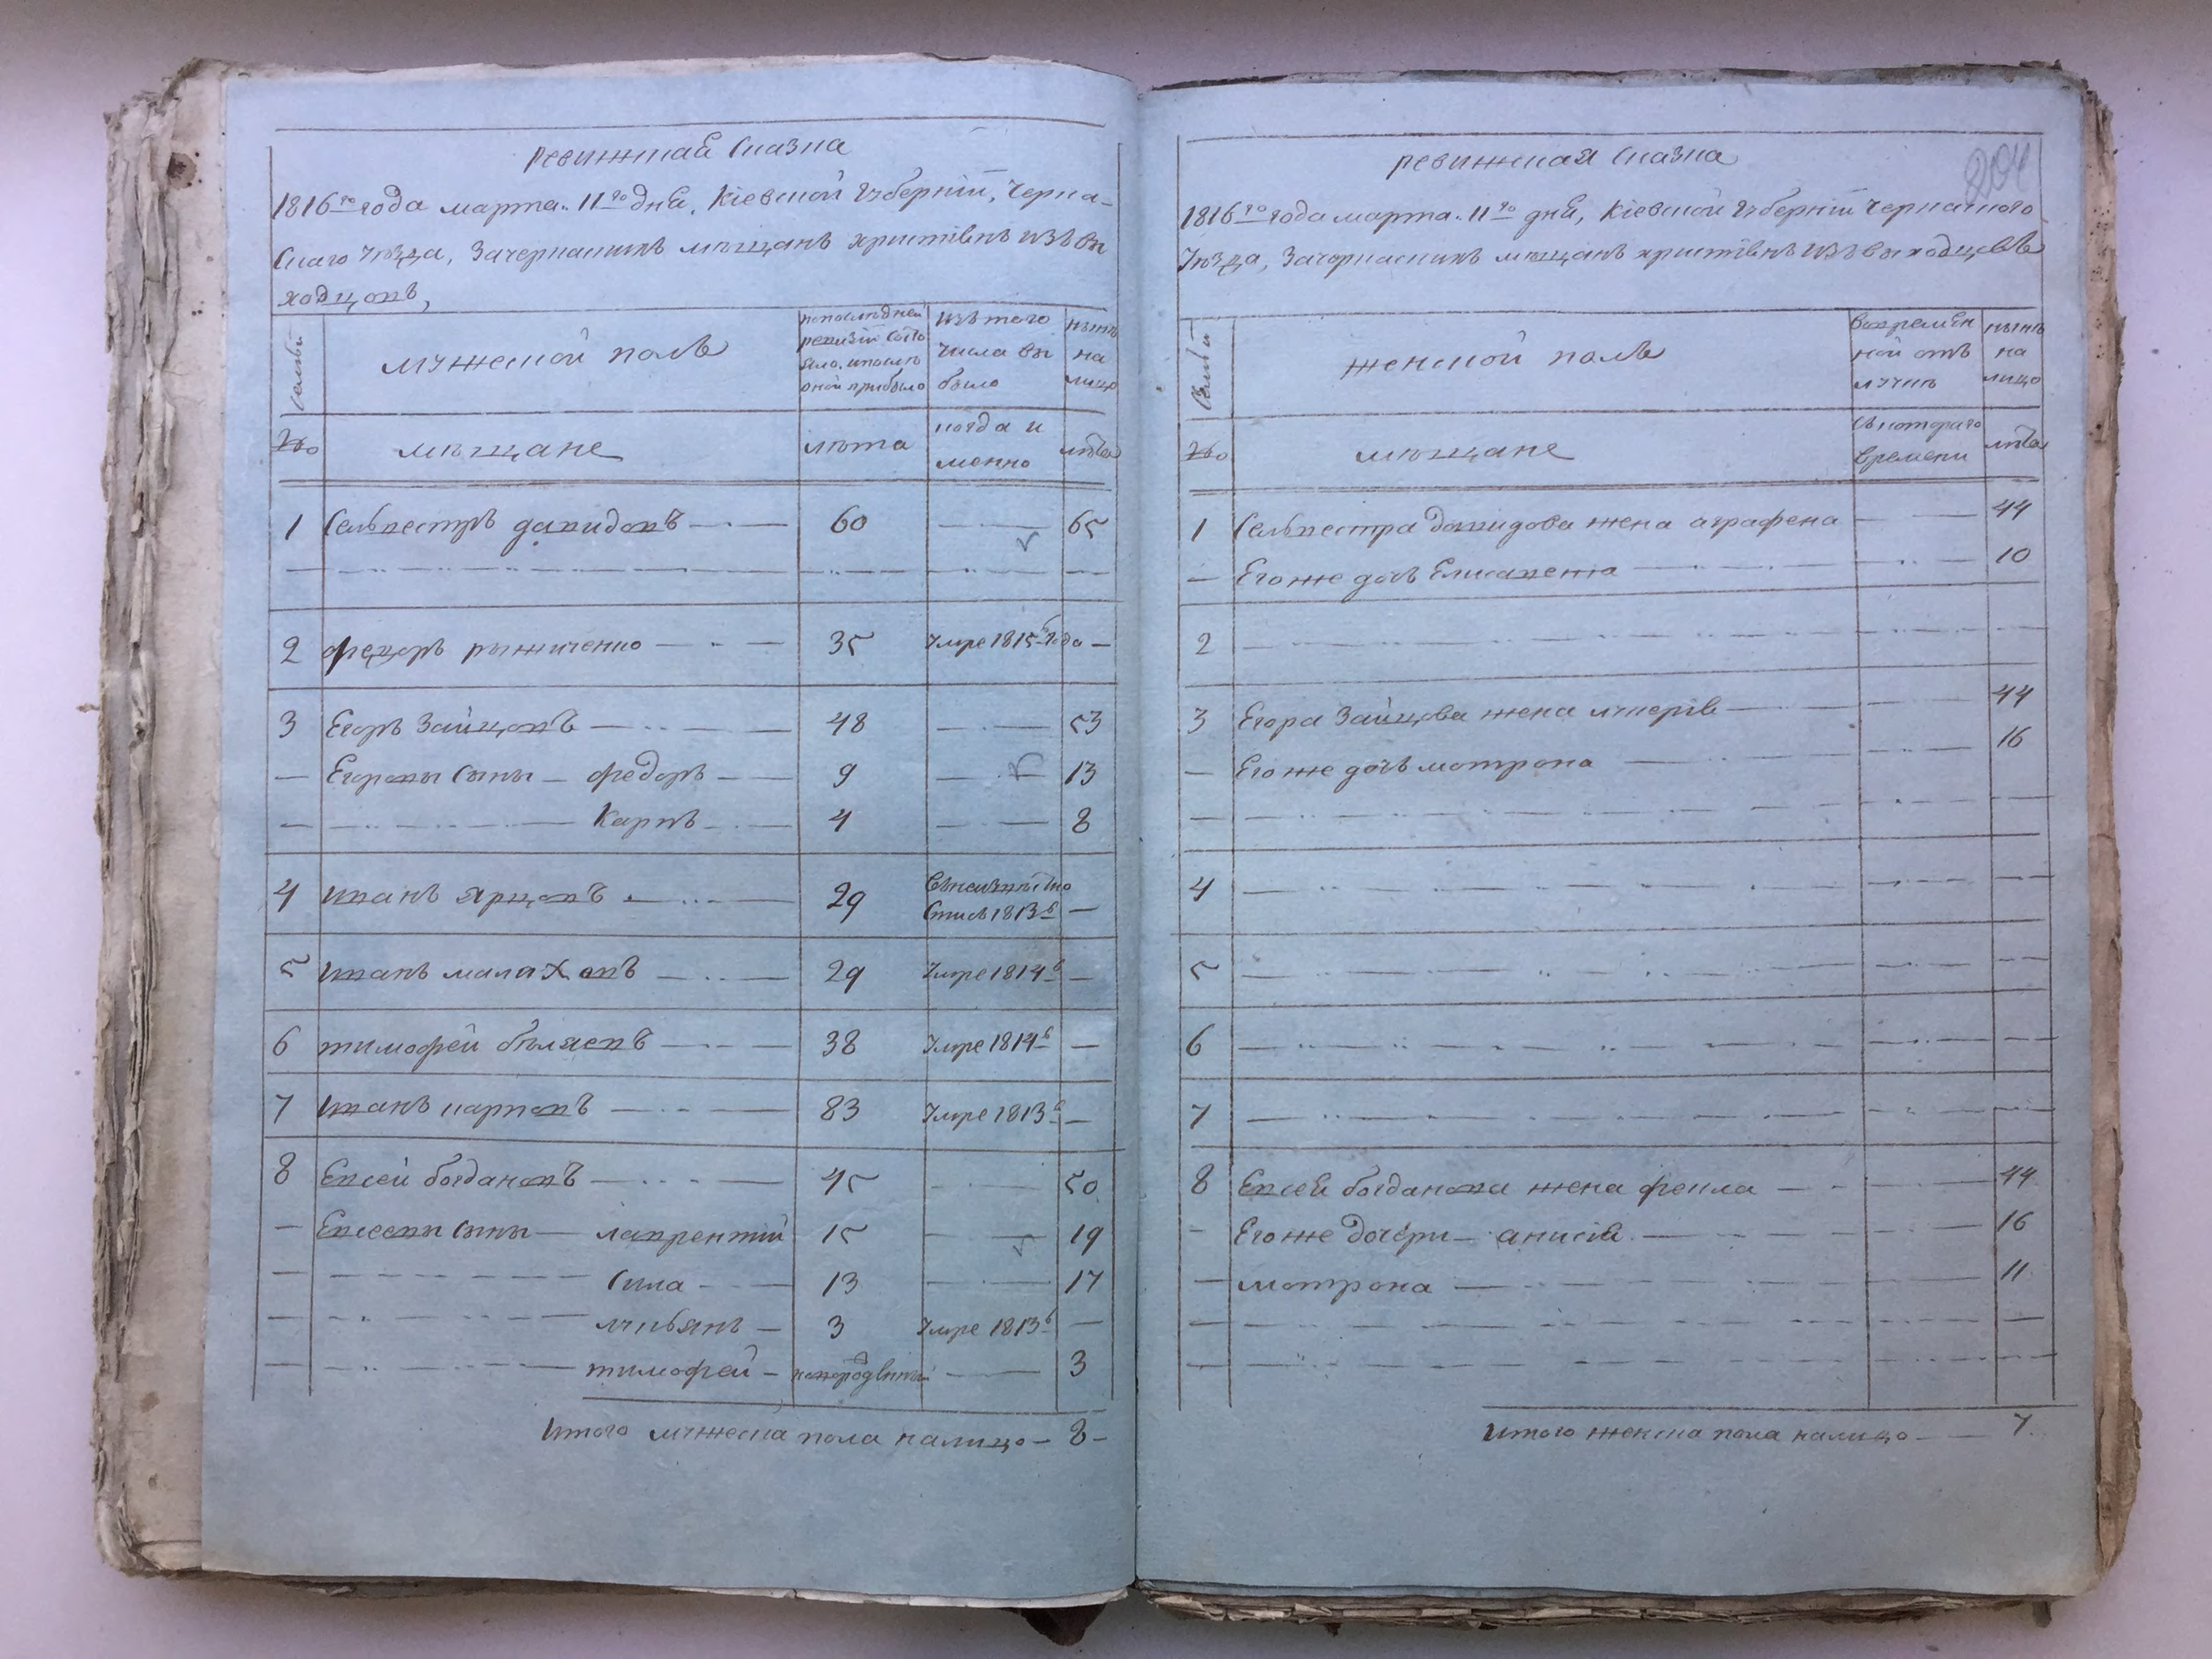 ревижская сказка
1816го года марта 11го дня, Кіевской губерніи, Черка-
скаго уѣзда, Зачеркаскихъ мѣщанъ христіянъ изъ вы
ходцовъ,
Семьи
мужеской полъ
по последней
ревизіи состо
яло, и после
оной прибыло
изъ того
числа вы
было
нынѣ
на
лицо
№
мѣщане
лѣта
когда и
менно
лѣта
1 Сельвестръ давидовъ 60 65
2 федоръ рыжиченко 35 Умре 1815го года
3 Егоръ Зайцовъ 48 53
Егоровы сыны федоръ 9 13
Карпъ 4 8
4 иванъ ярцовъ 29
1813го
5 иванъ малаховъ 29 Умре 1814го
6 тимофей бѣляевъ 38 Умре 1814го
7 иванъ карповъ 83 Умре 1813го
8 Евсей богдановъ 45 50
Евсеевы сыны лаврентій 15 19
Сила 13 17
лукьянъ 3 Умре 1813го
тимофей новорожденный 3
итого мужеска пола налицо 8
204
ревижская сказка
1816го года марта 11го дня, Кіевской губерніи Черкаского
Уѣзда, Зачеркаскихъ мѣщанъ христіянъ изъ выходцовъ
Семьи
женской полъ
во времен
ной отъ
лучкѣ
нынѣ
на
лицо
№
мѣщане
съ котораго
времени
лѣта
1 Сельвестра давидова жена аграфена 44
Его же дочь Елисавета 10
2
3 Егора Зайцова жена лукерія 44
Его же дочь мотрона 16
4
5
6
7
8 Евсея богданова жена фекла 44
Его же дочери анисія 16
мотрона 11
итого женска пола налицо 7